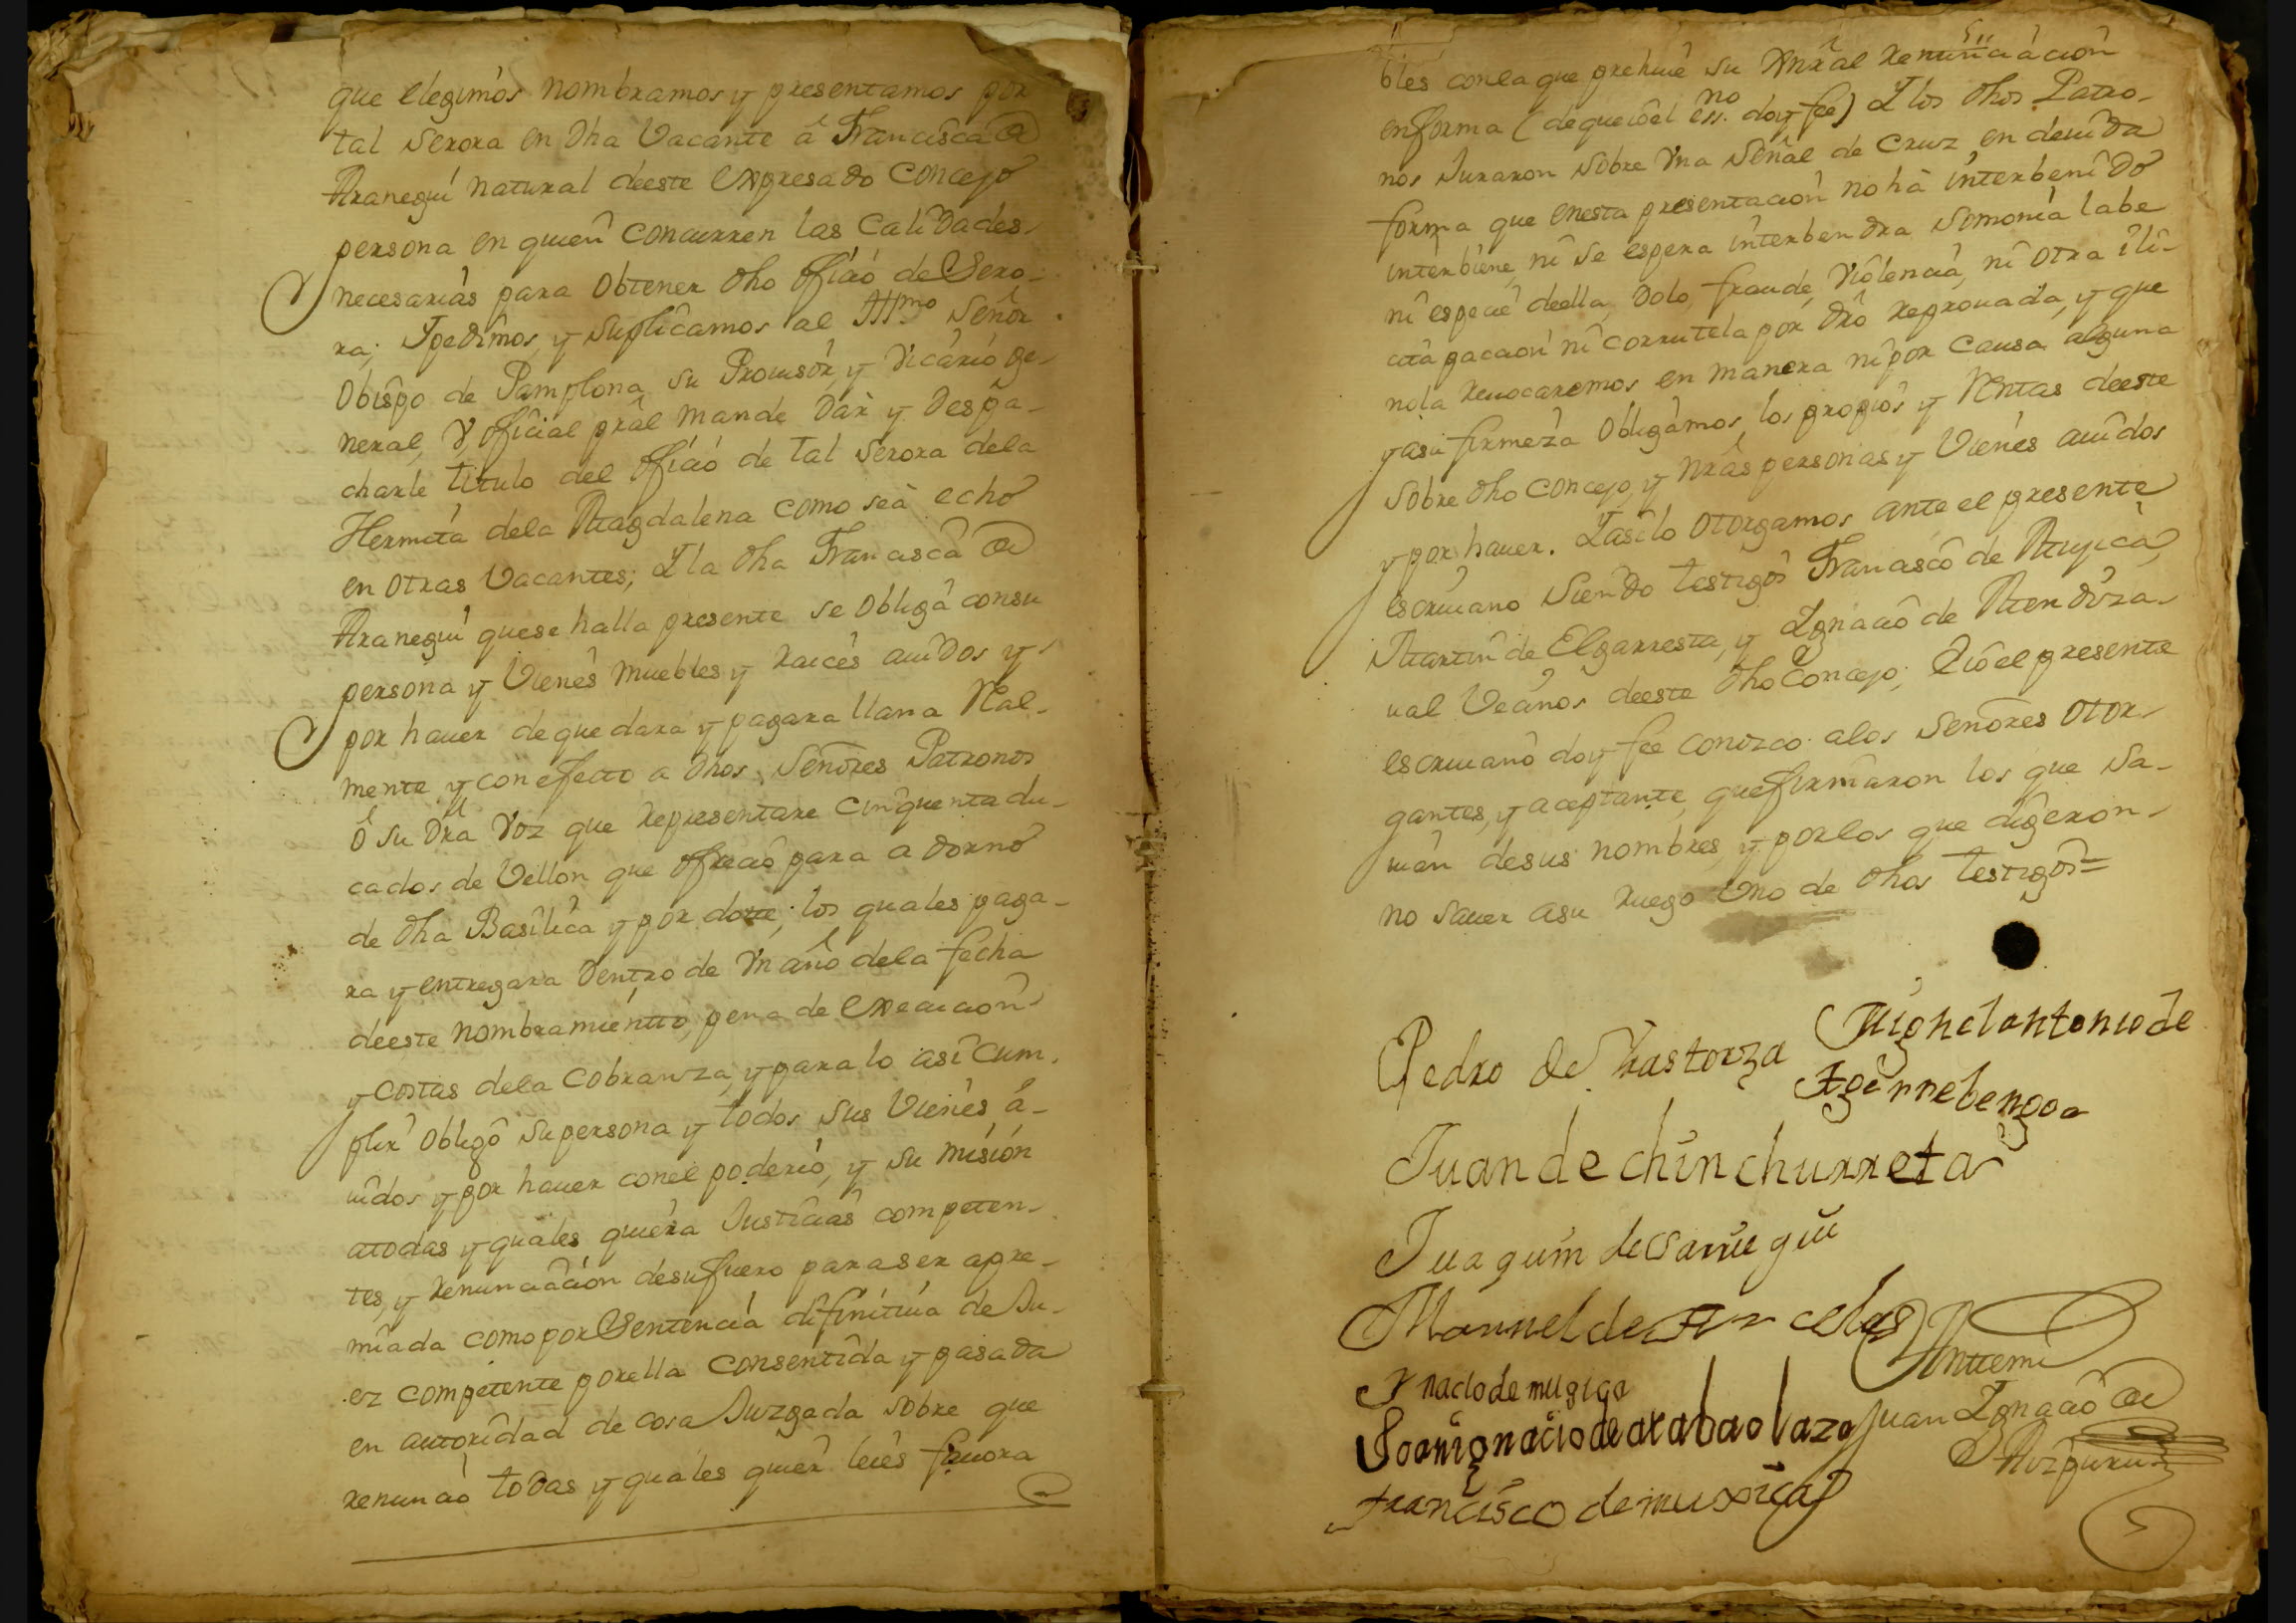 que elegimos nombramos y presentamos por
tal serora en dha Vacante â Francisca de
Aranegui natural deeste expresado concejo
persona en quien concurren las calidades
necesarias para obtener dho oficio de Sero-
ra; Ypedimos, y suplicamos al Illmo Señor
Obispo de Pamplona su Provisor, y Vicario ge-
neral, y oficial pral mande dar y despa-
charle titulo del oficio de tal serora dela
Hermita dela Magdalena como seà echo
en otras Vacantes; Y la dha Francisca de
Aranegui quese halla presente se obliga consu
persona y Vienes muebles y raices auidos y
por hauer de que dara y pagara llana Real-
mente y con efecto a dhos Señores Patronos
ô su dra voz que representare cinquenta du-
cados de Vellon que ofrecio para adorno
de dha Basilica y por dote; los quales paga-
ra y entregara dentro de Vn año dela fecha
deeste nombramiento, pena de execucion
y costas dela cobranza, y para lo asi cum-
plir obligô supersona y todos sus Vienes â-
uidos y por hauer conel poderio, y su misión
atodas y quales quiera Justicias competen-
tes, y renunciacion desufuero paraser apre-
miada como por Sentencia difinitiua de Ju-
ez competente porella consentida y pasada
en autoridad de cosa Juzgada sobre que
renunció todas y quales quier leies fauora
bles conla que prehiue su Gnral renunciacion
enforma (de que iô el essno. doy fee) Y los dhos Patro-
nos Juraron sobre Vna Señal de Cruz en deuida
forma que enesta presentacion nohà interbenido
interbiene, ni se espera interbendra simonia labe
ni especie deella, dolo, fraude, Violencia, ni otra ili-
cita pacacion ni corrutela por dro reprouada, y que
nola reuocaremos en manera nipor causa alguna
yasu firmeza obligamos los propios y Rentas deeste
sobre dho concejo, y nras personas y Vienes auidos
y por hauer. Yasilo otorgamos ante el presente
escriuano siendo testigos Francisco de Mugica,
Martin de Elgarresta, y Ygnacio de Mendiza-
ual Vecinos deeste dho Concejo; Eio el presente
escriuano doy fee conozco alos Señores otor-
gantes, y aceptante, quefirmaron los que sa-
uian desus nombres, y porlos que digeron
no sauer asu ruego Vno de dhos testigos=
Miguel antonio de
Pedro de Yrastorza
Juan de chinchurreta
Juaquin de Sarriegui
Manuel de
Anttemi
Ynacio de mugica
Juan Ygnacio de
Joan ignacio de arabaolaza
Aizpuru
francisco de muxica